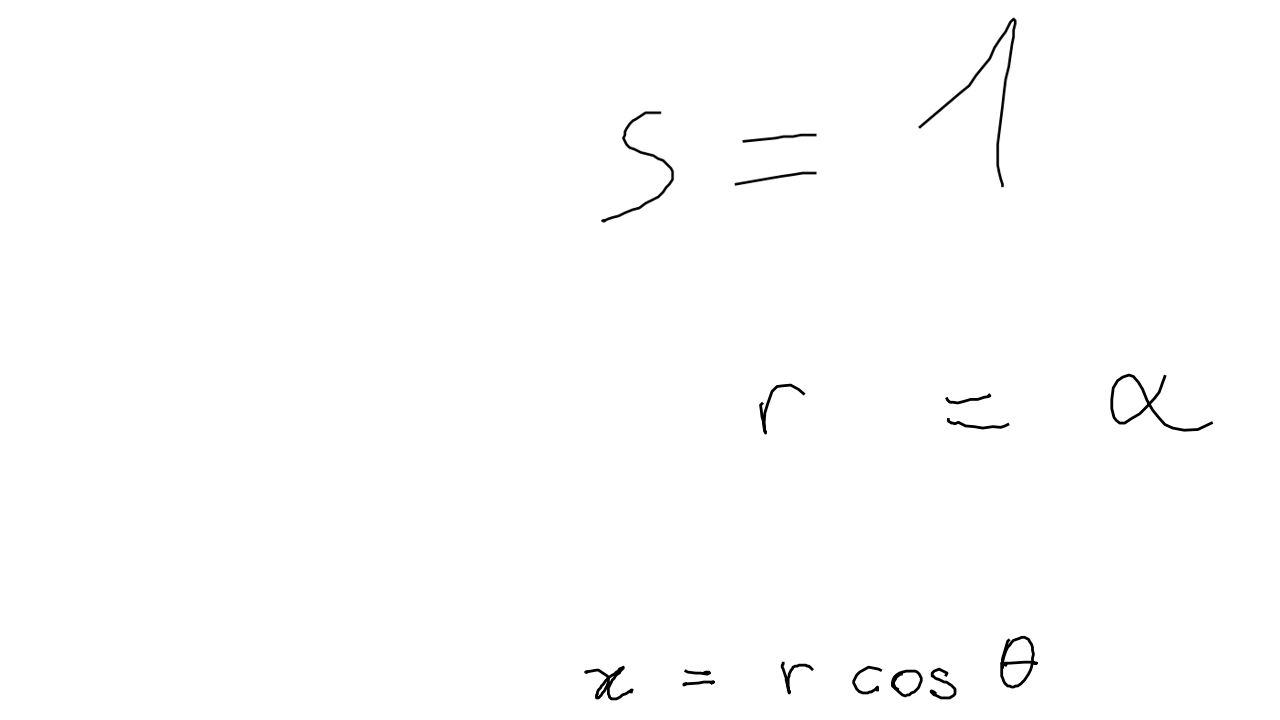 s = 1
r = α
x = r cos θ